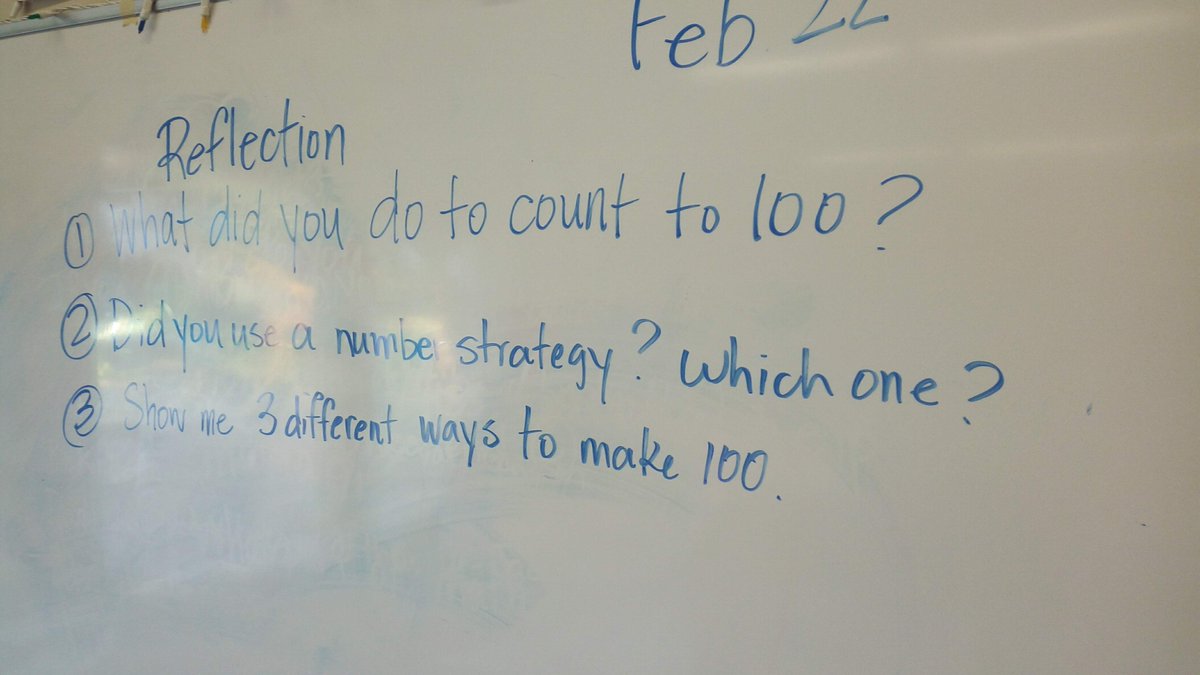 Feb 22
Reflection
① What did you do to count to 100?
② Did you use a number strategy? Which one?
③ Show me 3 different ways to make 100.